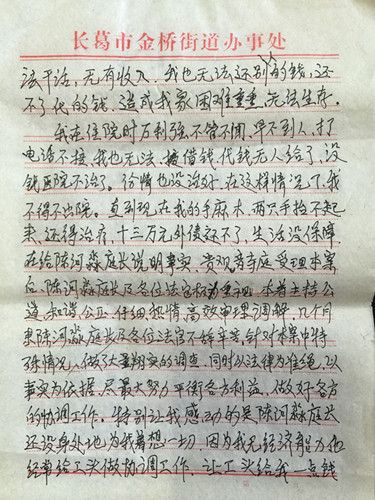 长葛市金桥街道办事处
法干活,无有收入,我也无法还别的钱,还
不了代的钱,造成我家困难重重,无法生存。
我在住院时万利强不管不闻,早不到人,打
电话不接,我也无法,借钱,代钱无人给了,没
钱医院不治了。伤情也没治好,在这样情况下,我
不得不出院。直到现在我的手麻木,两只手捡不起
来,还得治疗,十三万元外债还不了,生活没保障,
在给陈河淼庭长说明事实,贵观音寺庭,受理本案
后,陈河淼庭长及各位法官极重视,本着主持公
道,和谐,公正,仔细热情高效审理调解,几个月
来陈河淼庭长及各位法官不辞辛苦,针对本案中特
殊情况,做了大量翔实的调查,同时以法律为准绳,以
事实为依据,尽最大努力平衡各方利益,做好各方
的协调工作。特别让我感动的是陈河淼庭长
还设身处地为我着想一切,因为我无经济能力他
经常给工头做协调工作,让工头给我一点钱